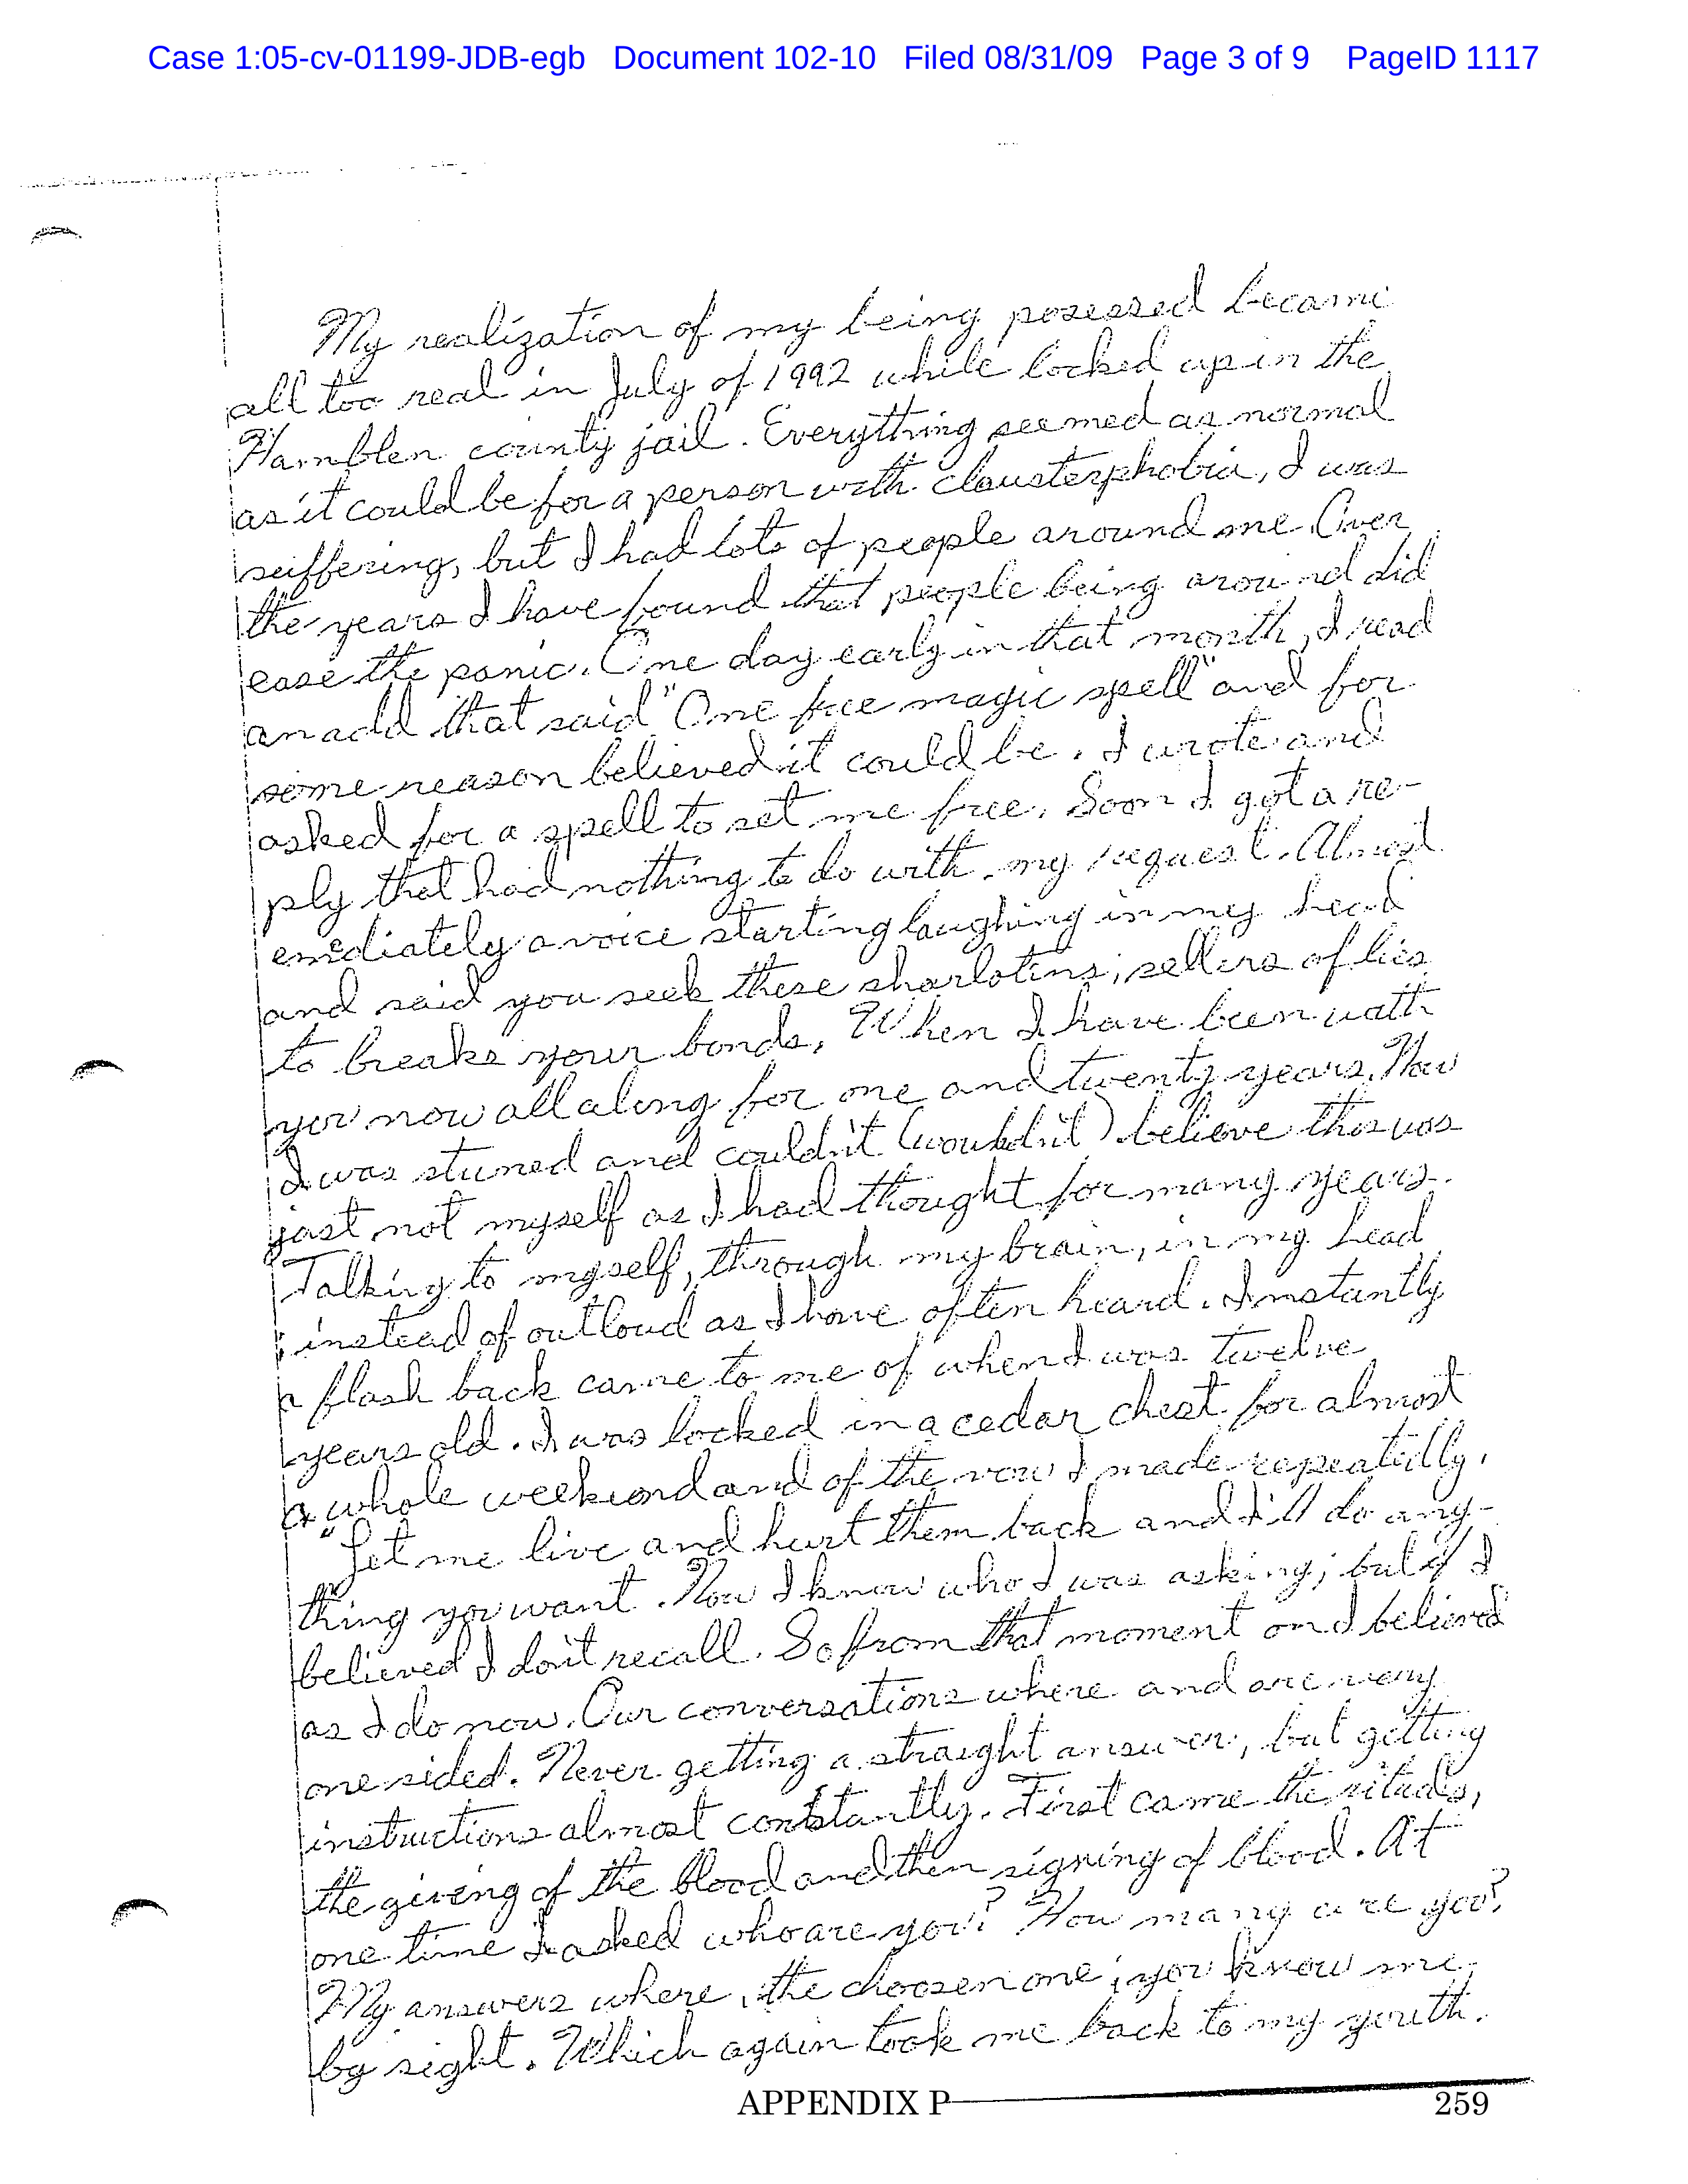 Case 1:05-cv-01199-JDB-egb Document 102-10 Filed 08/31/09 Page 3 of 9 PageID 1117
My realization of my being posessed became
all too real in July of 1992 while locked up in the
Hamblen county jail. Everything seemed as normal
as it could be for a person with clausterphobia, I was
suffering, but I had lots of people around me. Over
the years I have found that people being around did
ease the panic. One day early in that month, I read
an add that said "One free magic spell" and for
some reason believed it could be. I wrote and
asked for a spell to set me free. Soon I got a re-
ply that had nothing to do with my request. Almost
emediately a voice starting laughing in my head
and said you seek these sharlotins, sellers of lies
to breake your bonds. When I have been with
you now all along for one and twenty years. Now
I was stuned and could'nt (would'nt) believe this was
just not myself as I had thought for many years.
Talking to myself, through my brain, in my head
instead of out loud as I have often heard. Instantly
a flash back came to me of when I was twelve
years old. I was locked in a cedar chest for almost
a whole weekend and of the vow I made repeatedly.
"Let me live and hurt them back and I'll do any-
thing you want. Now I know who I was asking; but if I
believed I don't recall. So from that moment on I believed
as I do now. Our conversations where and are very
one sided. Never getting a straight answer, but getting
instructions almost constantly. First came the rituals,
the giving of the blood and then signing of blood. At
one time I asked who are you? How many are you?
My answers where, the choosen one; you know me
by sight. Which again took me back to my youth.
APPENDIX P 259